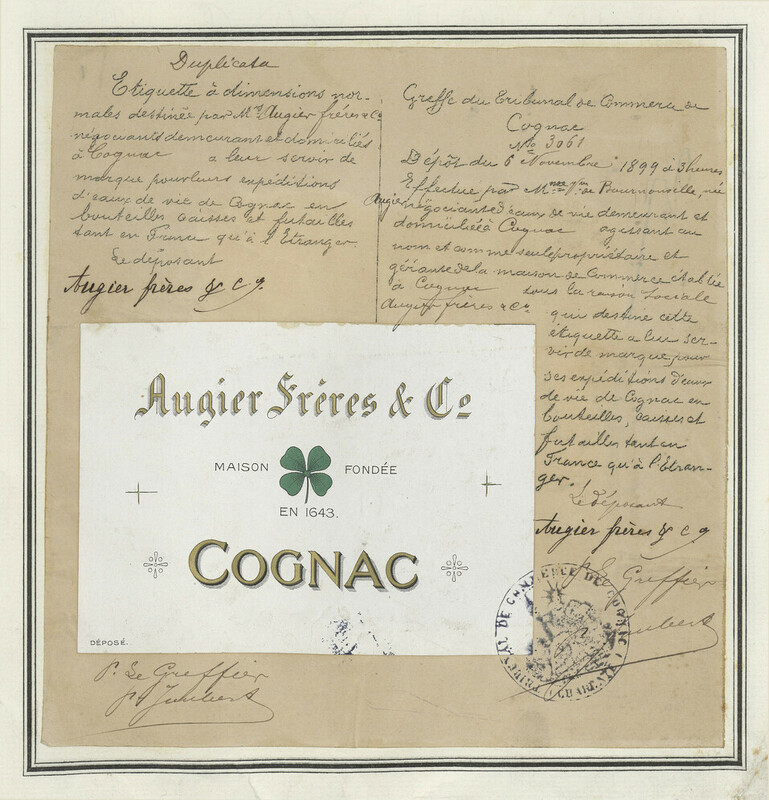 Duplicata
Etiquette à dimensions nor-
males destinée par Mrs Augier frères & Co
négociants demeurant et domiciliés
à Cognac a leur servir de
marque pour leurs expéditions
d'eaux de vie de Cognac en
bouteilles caisses et futailles
tant en France qu'à l'Etranger.
Le déposant
Augier frères & Co.
Greffe du Tribunal de Commerce de
Cognac
No 3061
Dépôt du 6 Novembre 1899 à 3 heures
Effectué par de Bournonselle, née
Augier négociante d'eaux de vie demeurant et
domiciliée à Cognac agissant au
nom et comme seule propriétaire et
gérante de la maison de Commerce établie
à Cognac sous la raison sociale
Augier frères & Co.
qui destine cette
étiquette a leur ser-
vir de marque pour
ses expéditions d'eaux
de vie de Cognac en
bouteilles, caisses et
futailles tant en
France qu'à l'Etran-
ger.
Le déposant
Augier frères & Co.
P. Le Greffier
Joubert
Augier Frères & Co
MAISON FONDÉE
EN 1643.
COGNAC
DÉPOSÉ.
P. Le Greffier
Joubert
TRIBUNAL DE COMMERCE DE COGNAC
(CHARENTE)